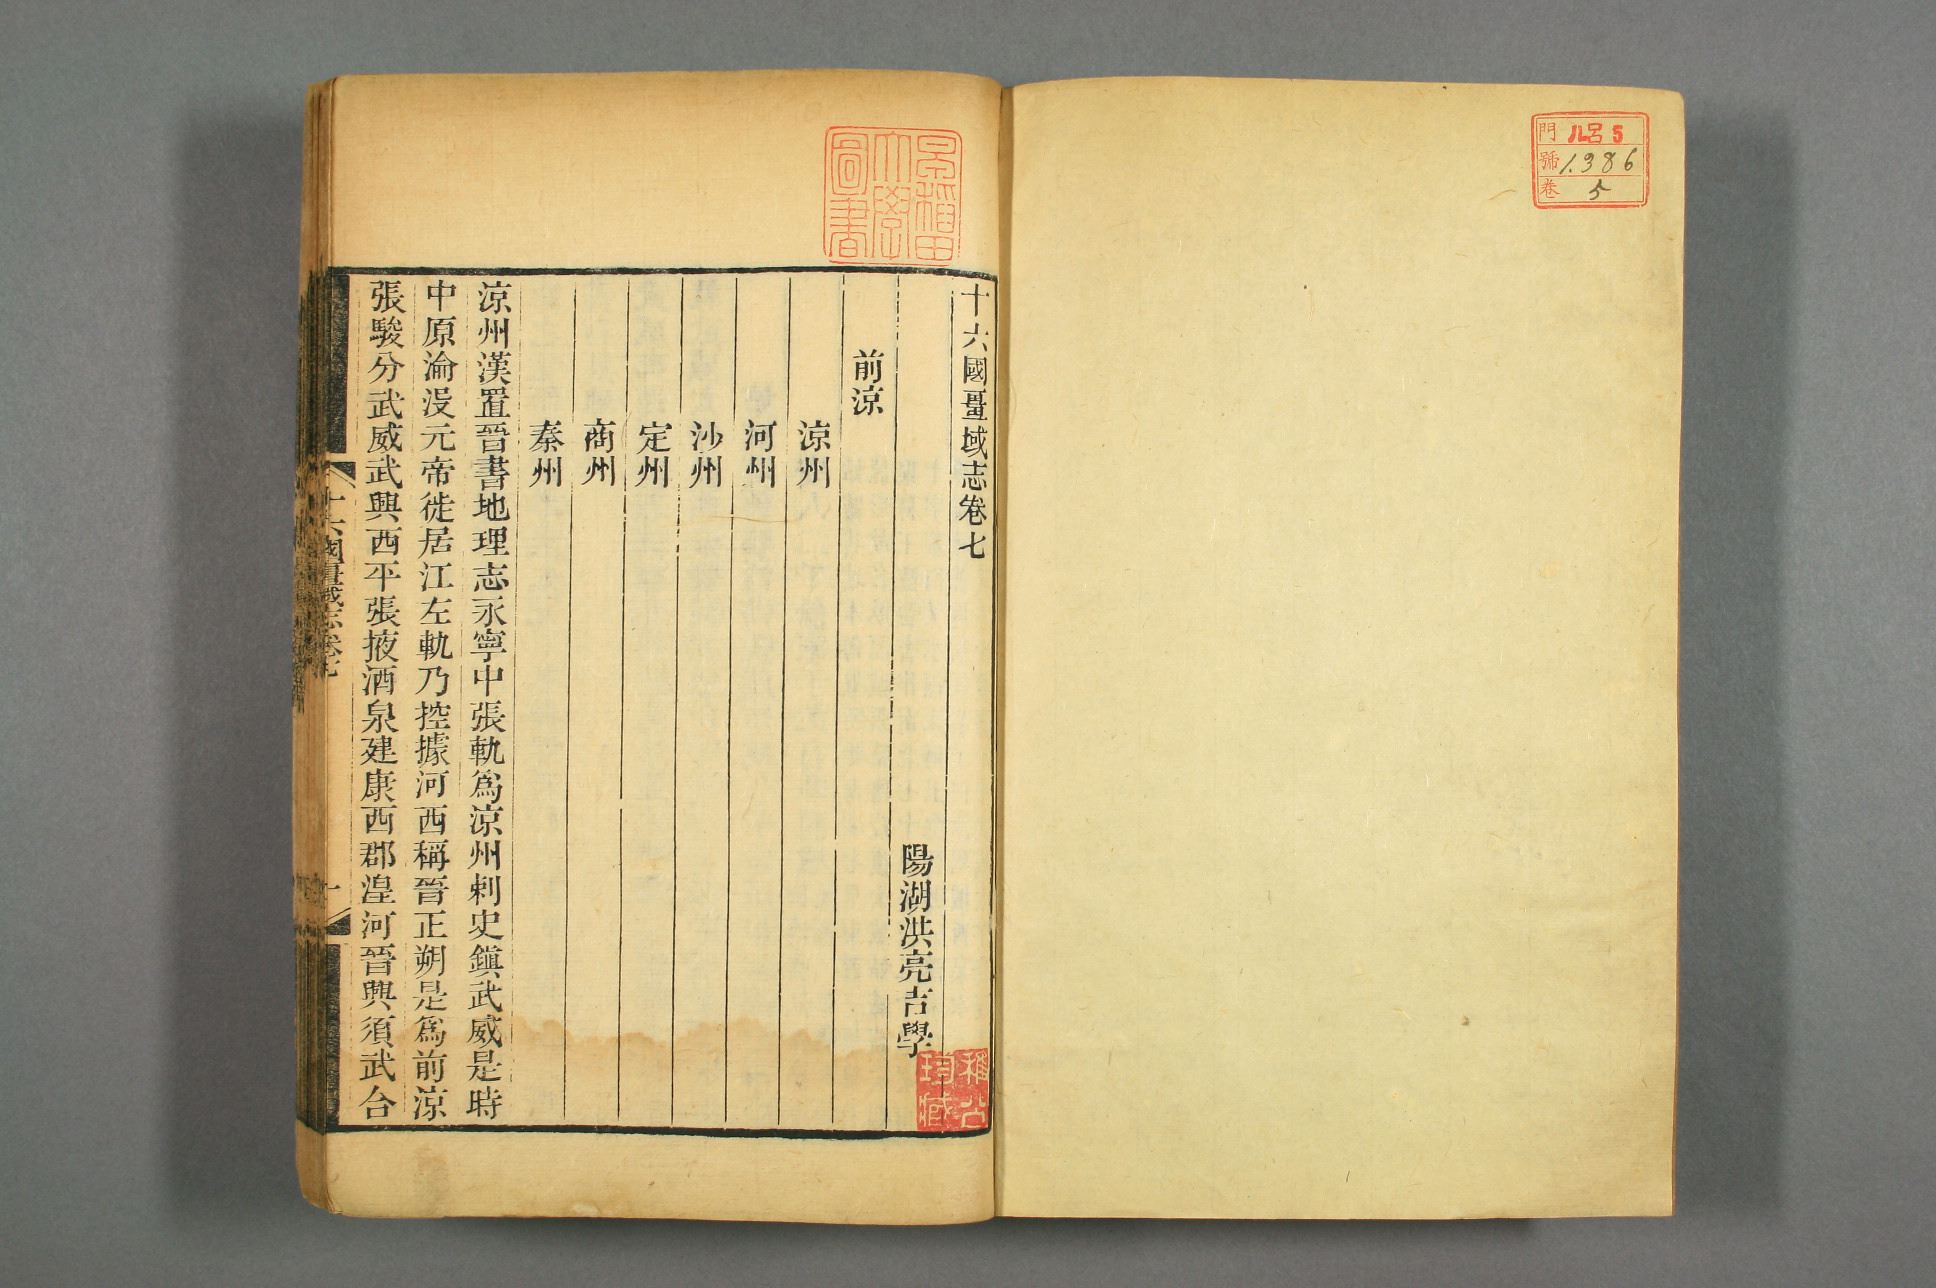 門 ル呂 5
號 1386
卷 5
早稻田大學圖書
十六國畺域志卷七
陽湖洪亮吉學
前涼
涼州
河州
沙州
定州
商州
秦州
涼州漢置晉書地理志永寧中張軌爲涼州刺史鎭武威是時
中原淪沒元帝徙居江左軌乃控據河西稱晉正朔是爲前涼
張駿分武威武興西平張掖酒泉建康西郡湟河晉興須武合
十六國畺域志卷七
一